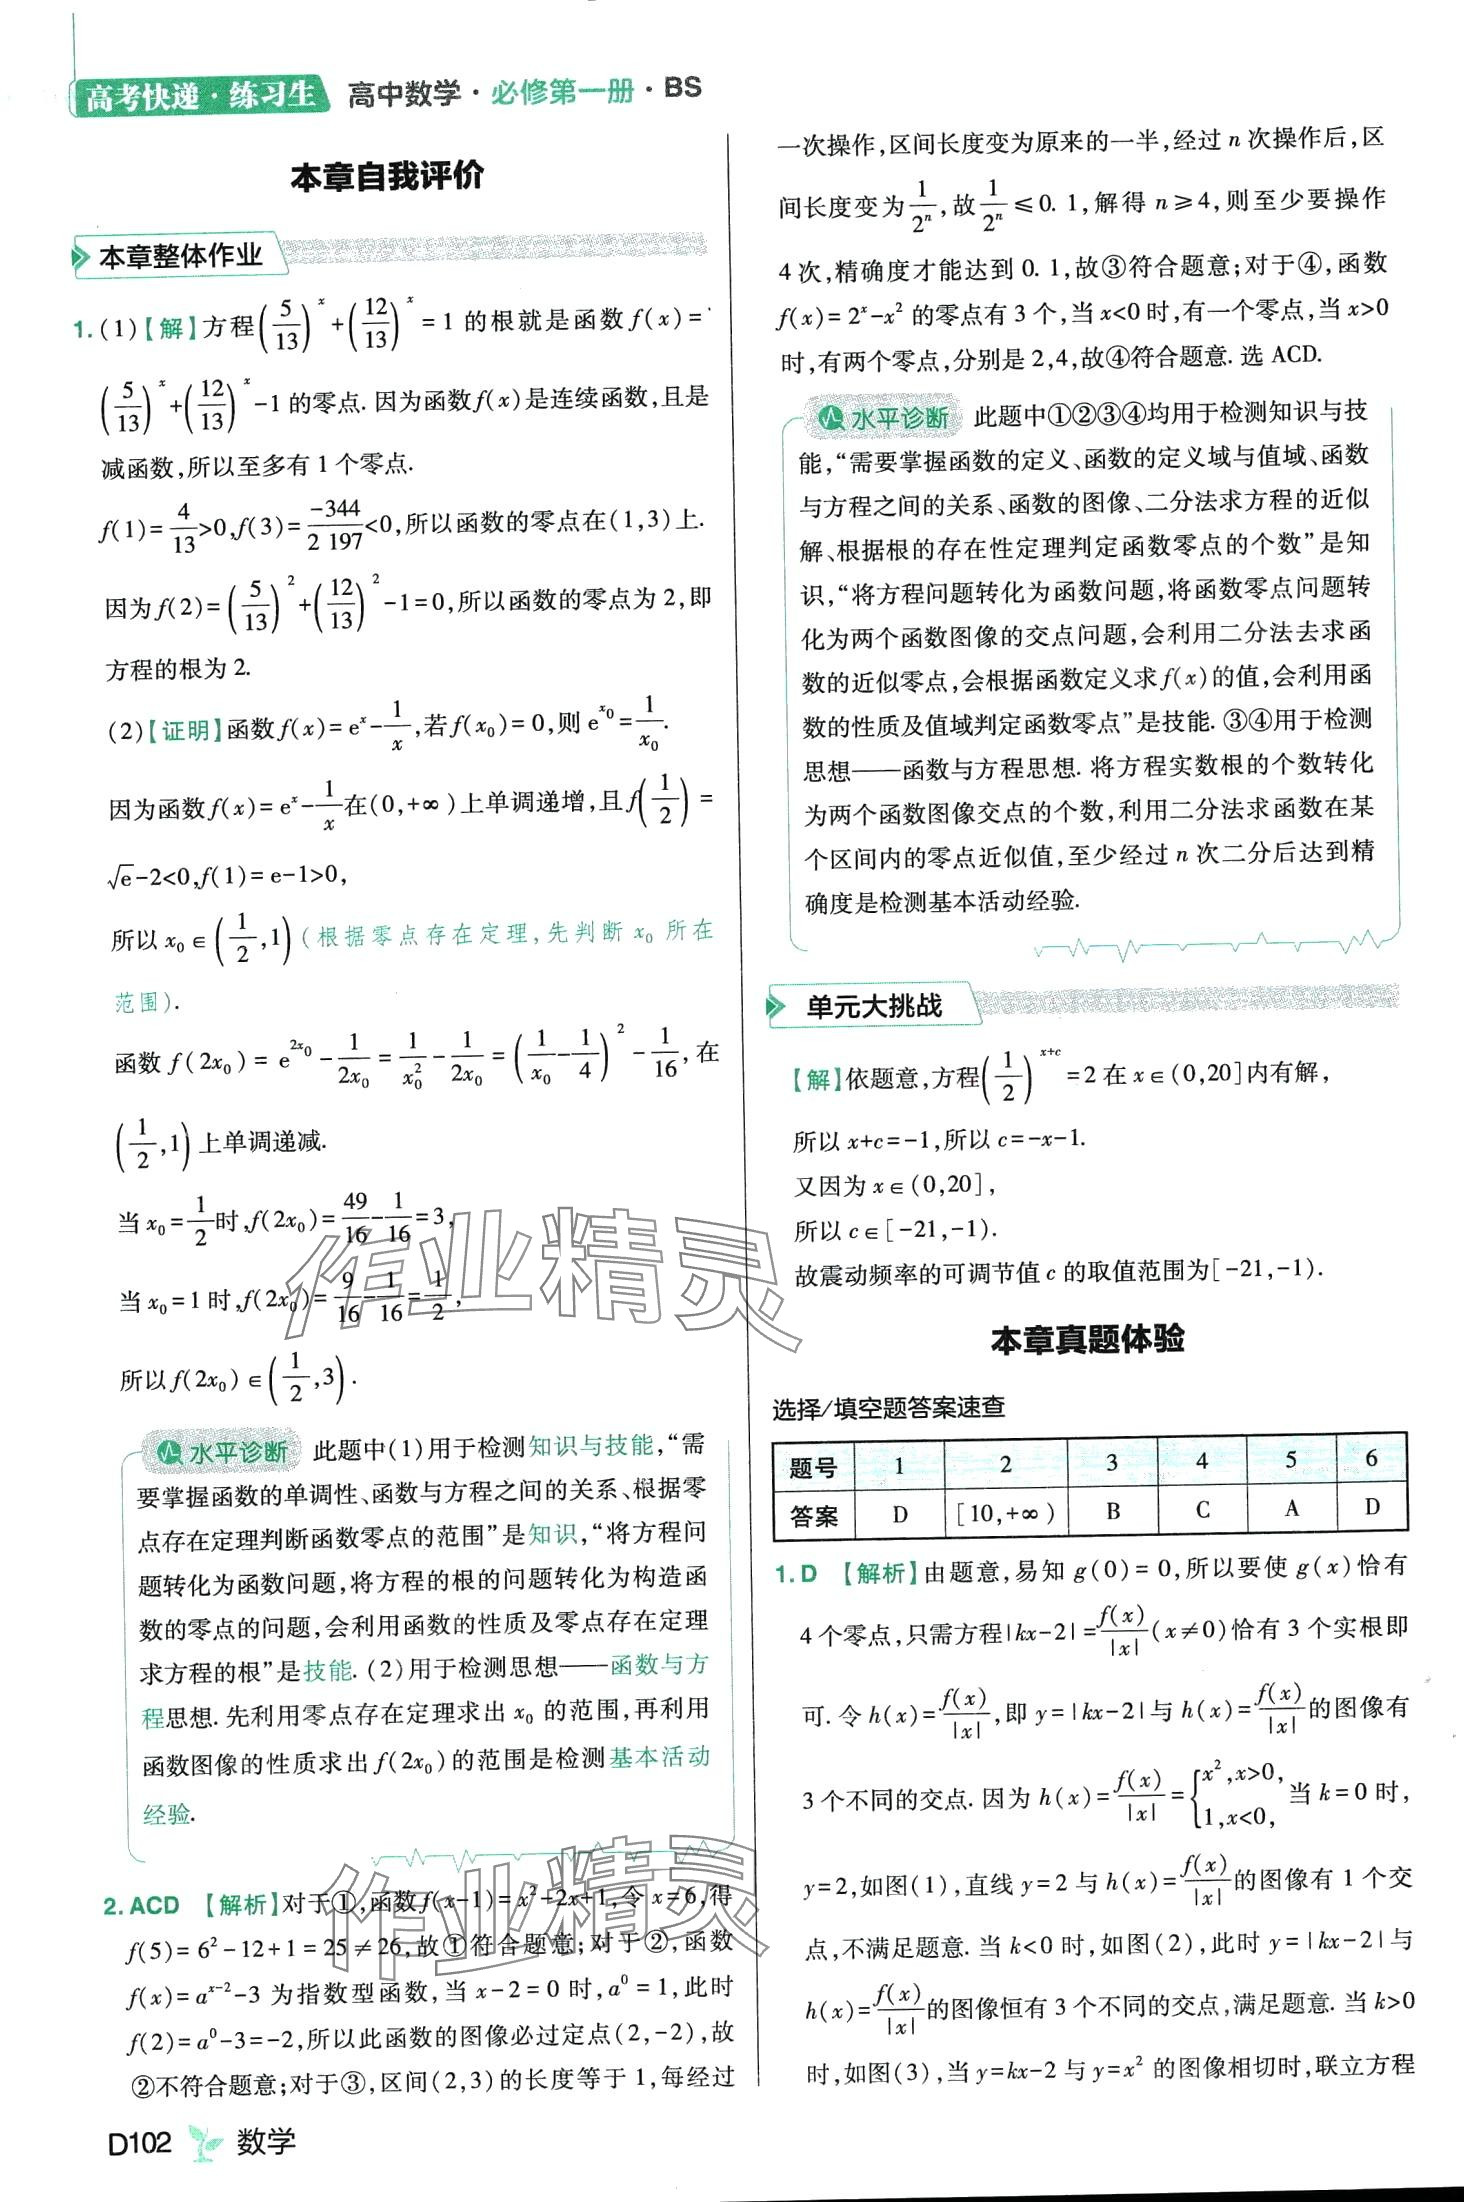 高考快递·练习生 高中数学·必修第一册·BS
本章自我评价
本章整体作业
1.(1)【解】方程(5/13)^x+(12/13)^x=1 的根就是函数 f(x)=
(5/13)^x+(12/13)^x-1 的零点. 因为函数 f(x) 是连续函数,且是
减函数,所以至多有 1 个零点.
f(1)=4/13>0,f(3)=-344/2 197<0,所以函数的零点在(1,3)上.
因为 f(2)=(5/13)^2+(12/13)^2-1=0,所以函数的零点为 2,即
方程的根为 2.
(2)【证明】函数 f(x)=e^x-1/x,若 f(x₀)=0,则 e^x₀=1/x₀.
因为函数 f(x)=e^x-1/x 在(0,+∞)上单调递增,且 f(1/2)=
√e-2<0,f(1)=e-1>0,
所以 x₀∈(1/2,1)(根据零点存在定理,先判断 x₀ 所在
范围).
函数 f(2x₀)=e^2x₀-1/2x₀=1/x₀²-1/2x₀=(1/x₀-1/4)²-1/16,在
(1/2,1)上单调递减.
当 x₀=1/2 时,f(2x₀)=49/16-1/16=3,
当 x₀=1 时,f(2x₀)=9/16-1/16=1/2,
所以 f(2x₀)∈(1/2,3).
水平诊断 此题中(1)用于检测知识与技能,“需
要掌握函数的单调性、函数与方程之间的关系、根据零
点存在定理判断函数零点的范围”是知识,“将方程问
题转化为函数问题,将方程的根的问题转化为构造函
数的零点的问题,会利用函数的性质及零点存在定理
求方程的根”是技能. (2)用于检测思想——函数与方
程思想. 先利用零点存在定理求出 x₀ 的范围,再利用
函数图像的性质求出 f(2x₀) 的范围是检测基本活动
经验.
2. ACD 【解析】对于①,函数 f(x-1)=x²-2x+1,令 x=6,得
f(5)=6²-12+1=25≠26,故①符合题意;对于②,函数
f(x)=a^x-2-3 为指数型函数,当 x-2=0 时,a⁰=1,此时
f(2)=a⁰-3=-2,所以此函数的图像必过定点(2,-2),故
②不符合题意;对于③,区间(2,3)的长度等于 1,每经过
D102 数学
一次操作,区间长度变为原来的一半,经过 n 次操作后,区
间长度变为 1/2^n,故 1/2^n≤0.1,解得 n≥4,则至少要操作
4 次,精确度才能达到 0.1,故③符合题意;对于④,函数
f(x)=2^x-x² 的零点有 3 个,当 x<0 时,有一个零点,当 x>0
时,有两个零点,分别是 2,4,故④符合题意. 选 ACD.
水平诊断 此题中①②③④均用于检测知识与技
能,“需要掌握函数的定义、函数的定义域与值域、函数
与方程之间的关系、函数的图像、二分法求方程的近似
解、根据根的存在性定理判定函数零点的个数”是知
识,“将方程问题转化为函数问题,将函数零点问题转
化为两个函数图像的交点问题,会利用二分法去求函
数的近似零点,会根据函数定义求 f(x) 的值,会利用函
数的性质及值域判定函数零点”是技能. ③④用于检测
思想——函数与方程思想. 将方程实数根的个数转化
为两个函数图像交点的个数,利用二分法求函数在某
个区间内的零点近似值,至少经过 n 次二分后达到精
确度是检测基本活动经验.
单元大挑战
【解】依题意,方程(1/2)^x+c=2 在 x∈(0,20]内有解,
所以 x+c=-1,所以 c=-x-1.
又因为 x∈(0,20],
所以 c∈[-21,-1).
故震动频率的可调节值 c 的取值范围为[-21,-1).
本章真题体验
选择/填空题答案速查
题号 1 2 3 4 5 6
答案 D [10,+∞) B C A D
1. D 【解析】由题意,易知 g(0)=0,所以要使 g(x) 恰有
4 个零点,只需方程|kx-2|=f(x)/|x|(x≠0)恰有 3 个实根即
可. 令 h(x)=f(x)/|x|,即 y=|kx-2|与 h(x)=f(x)/|x|的图像有
3 个不同的交点. 因为 h(x)=f(x)/|x|={x²,x>0, 1,x<0, 当 k=0 时,
y=2,如图(1),直线 y=2 与 h(x)=f(x)/|x|的图像有 1 个交
点,不满足题意. 当 k<0 时,如图(2),此时 y=|kx-2|与
h(x)=f(x)/|x|的图像恒有 3 个不同的交点,满足题意. 当 k>0
时,如图(3),当 y=kx-2 与 y=x² 的图像相切时,联立方程
作业精灵
作业精灵